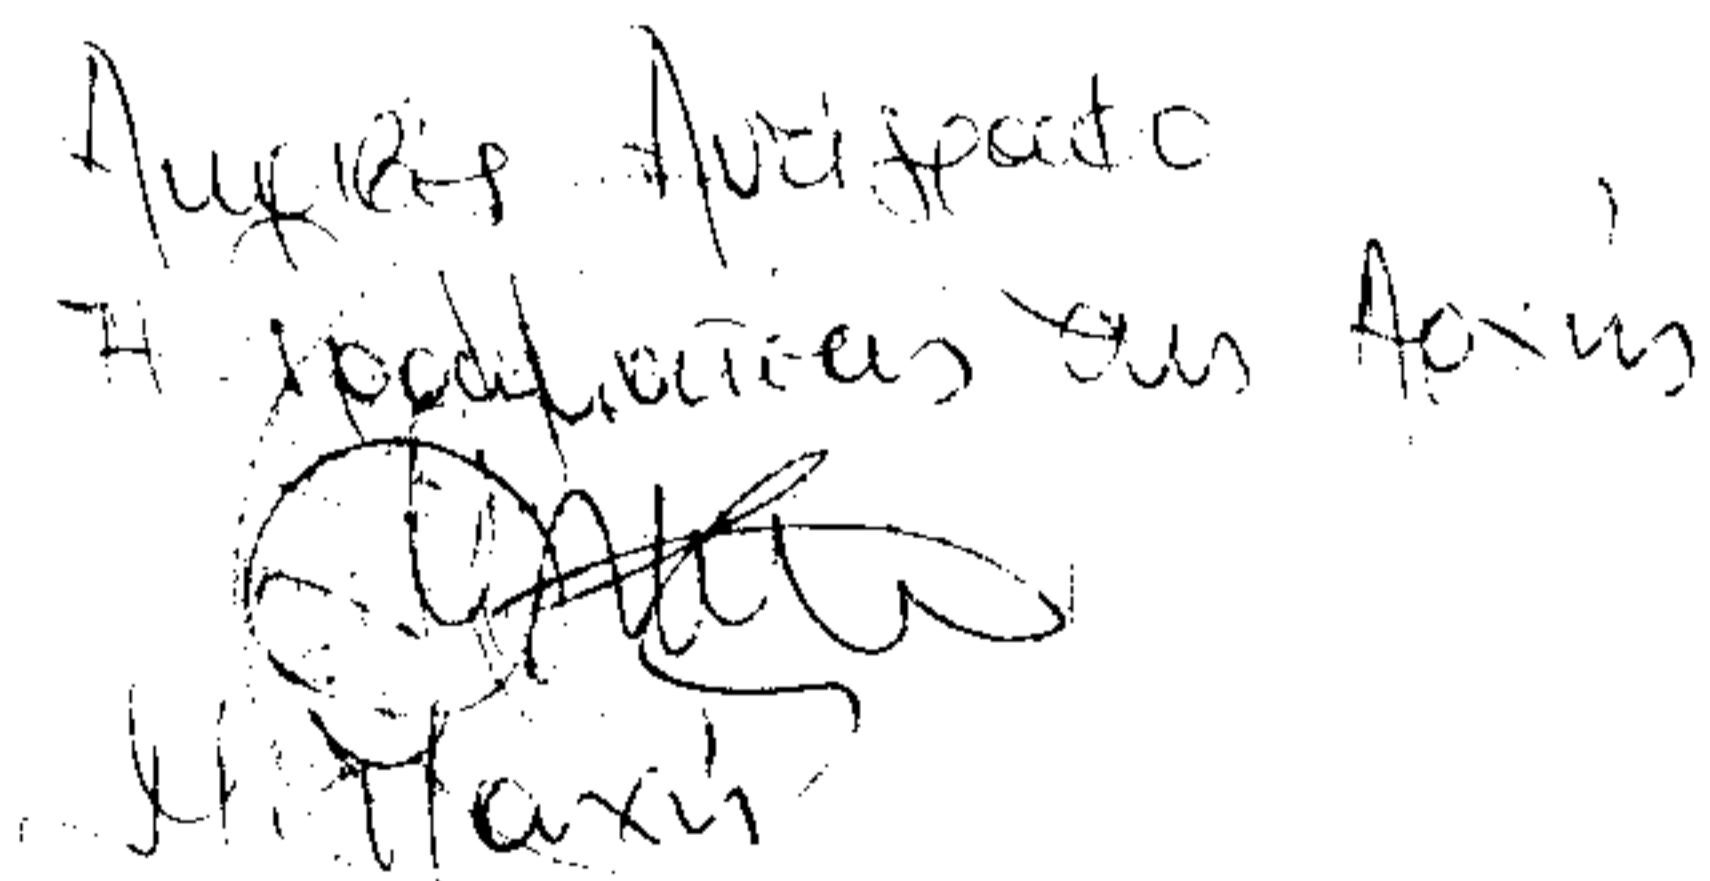 Ακριβές Αντίγραφο
Η Γραμματέας της Αρχής
Μ. Παχή